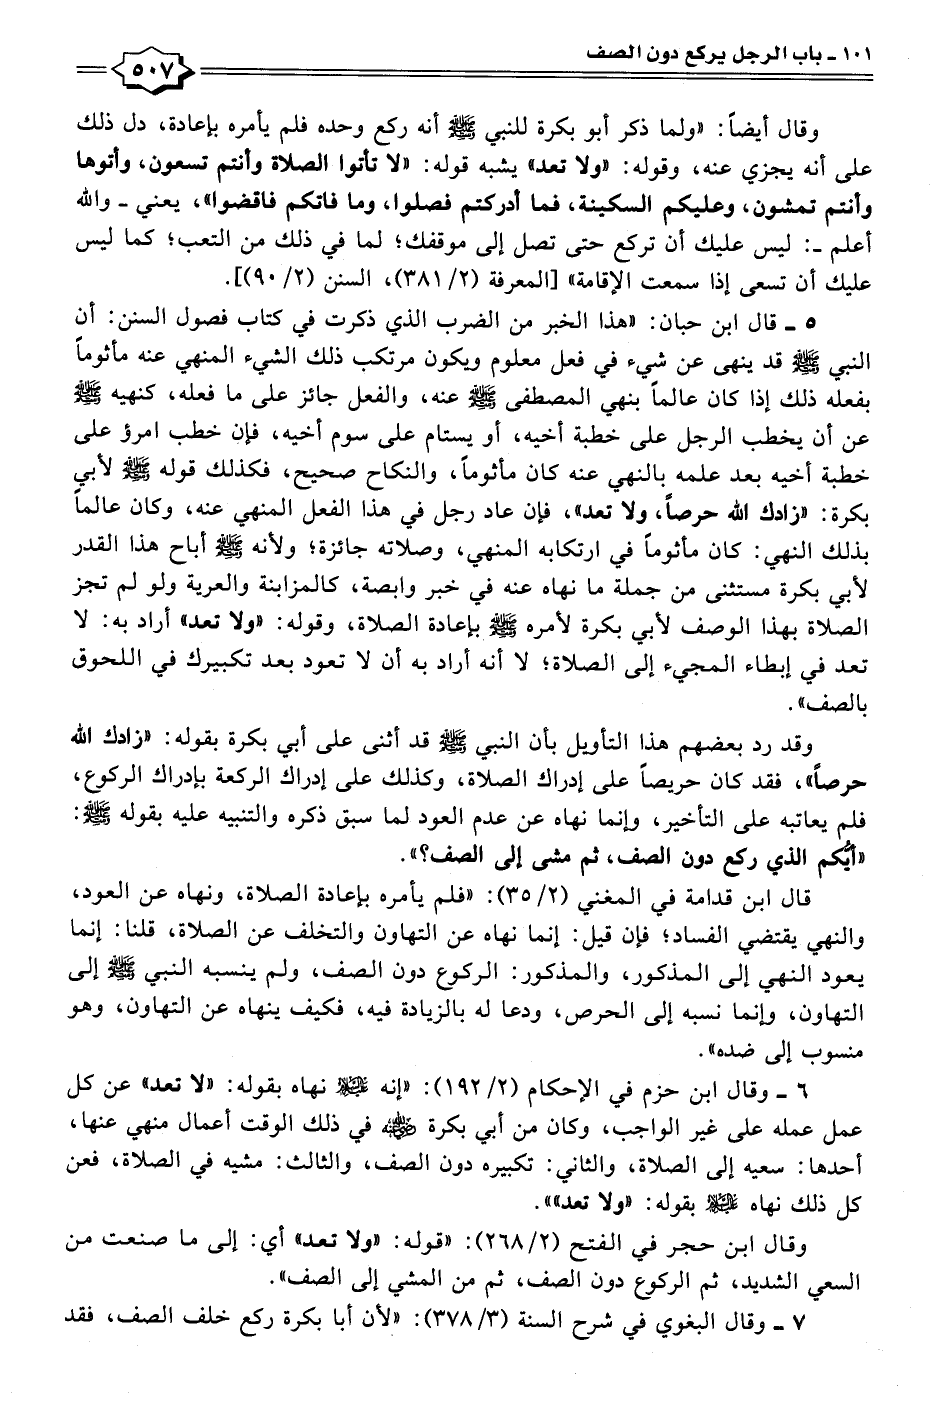 ١٠١ ـ باب الرجل يركع دون الصف
٥٠٧
وقال أيضاً: «ولما ذكر أبو بكرة للنبي ﷺ أنه ركع وحده فلم يأمره بإعادة، دل ذلك
على أنه يجزي عنه، وقوله: «ولا تعد» يشبه قوله: «لا تأتوا الصلاة وأنتم تسعون، وأتوها
وأنتم تمشون، وعليكم السكينة، فما أدركتم فصلوا، وما فاتكم فاقضوا»، يعني ـ والله
أعلم ـ: ليس عليك أن تركع حتى تصل إلى موقفك؛ لما في ذلك من التعب؛ كما ليس
عليك أن تسعى إذا سمعت الإقامة» [المعرفة (٣٨١/٢)، السنن (٩٠/٢)].
٥ ـ قال ابن حبان: «هذا الخبر من الضرب الذي ذكرت في كتاب فصول السنن: أن
النبي ﷺ قد ينهى عن شيء في فعل معلوم ويكون مرتكب ذلك الشيء المنهي عنه مأثوماً
بفعله ذلك إذا كان عالماً بنهي المصطفى ﷺ عنه، والفعل جائز على ما فعله، كنهيه ﷺ
عن أن يخطب الرجل على خطبة أخيه، أو يستام على سوم أخيه، فإن خطب امرؤ على
خطبة أخيه بعد علمه بالنهي عنه كان مأثوماً، والنكاح صحيح، فكذلك قوله ﷺ لأبي
بكرة: «زادك الله حرصاً، ولا تعد»، فإن عاد رجل في هذا الفعل المنهي عنه، وكان عالماً
بذلك النهي: كان مأثوماً في ارتكابه المنهي، وصلاته جائزة؛ ولأنه ﷺ أباح هذا القدر
لأبي بكرة مستثنى من جملة ما نهاه عنه في خبر وابصة، كالمزابنة والعرية ولو لم تجز
الصلاة بهذا الوصف لأبي بكرة لأمره ﷺ بإعادة الصلاة، وقوله: «ولا تعد» أراد به: لا
تعد في إبطاء المجيء إلى الصلاة؛ لا أنه أراد به أن لا تعود بعد تكبيرك في اللحوق
بالصف».
وقد رد بعضهم هذا التأويل بأن النبي ﷺ قد أثنى على أبي بكرة بقوله: «زادك الله
حرصاً»، فقد كان حريصاً على إدراك الصلاة، وكذلك على إدراك الركعة بإدراك الركوع،
فلم يعاتبه على التأخير، وإنما نهاه عن عدم العود لما سبق ذكره والتنبيه عليه بقوله ﷺ:
«أيُّكم الذي ركع دون الصف، ثم مشى إلى الصف؟».
قال ابن قدامة في المغني (٣٥/٢): «فلم يأمره بإعادة الصلاة، ونهاه عن العود،
والنهي يقتضي الفساد؛ فإن قيل: إنما نهاه عن التهاون والتخلف عن الصلاة، قلنا: إنما
يعود النهي إلى المذكور، والمذكور: الركوع دون الصف، ولم ينسبه النبي ﷺ إلى
التهاون، وإنما نسبه إلى الحرص، ودعا له بالزيادة فيه، فكيف ينهاه عن التهاون، وهو
منسوب إلى ضده».
٦ ـ وقال ابن حزم في الإحكام (١٩٢/٢): «إنه عليه السلام نهاه بقوله: «لا تعد» عن كل
عمل عمله على غير الواجب، وكان من أبي بكرة رضي الله عنه في ذلك الوقت أعمال منهي عنها،
أحدها: سعيه إلى الصلاة، والثاني: تكبيره دون الصف، والثالث: مشيه في الصلاة، فعن
كل ذلك نهاه عليه السلام بقوله: «ولا تعد»».
وقال ابن حجر في الفتح (٢٦٨/٢): «قوله: «ولا تعد» أي: إلى ما صنعت من
السعي الشديد، ثم الركوع دون الصف، ثم من المشي إلى الصف».
٧ ـ وقال البغوي في شرح السنة (٣٧٨/٣): «لأن أبا بكرة ركع خلف الصف، فقد